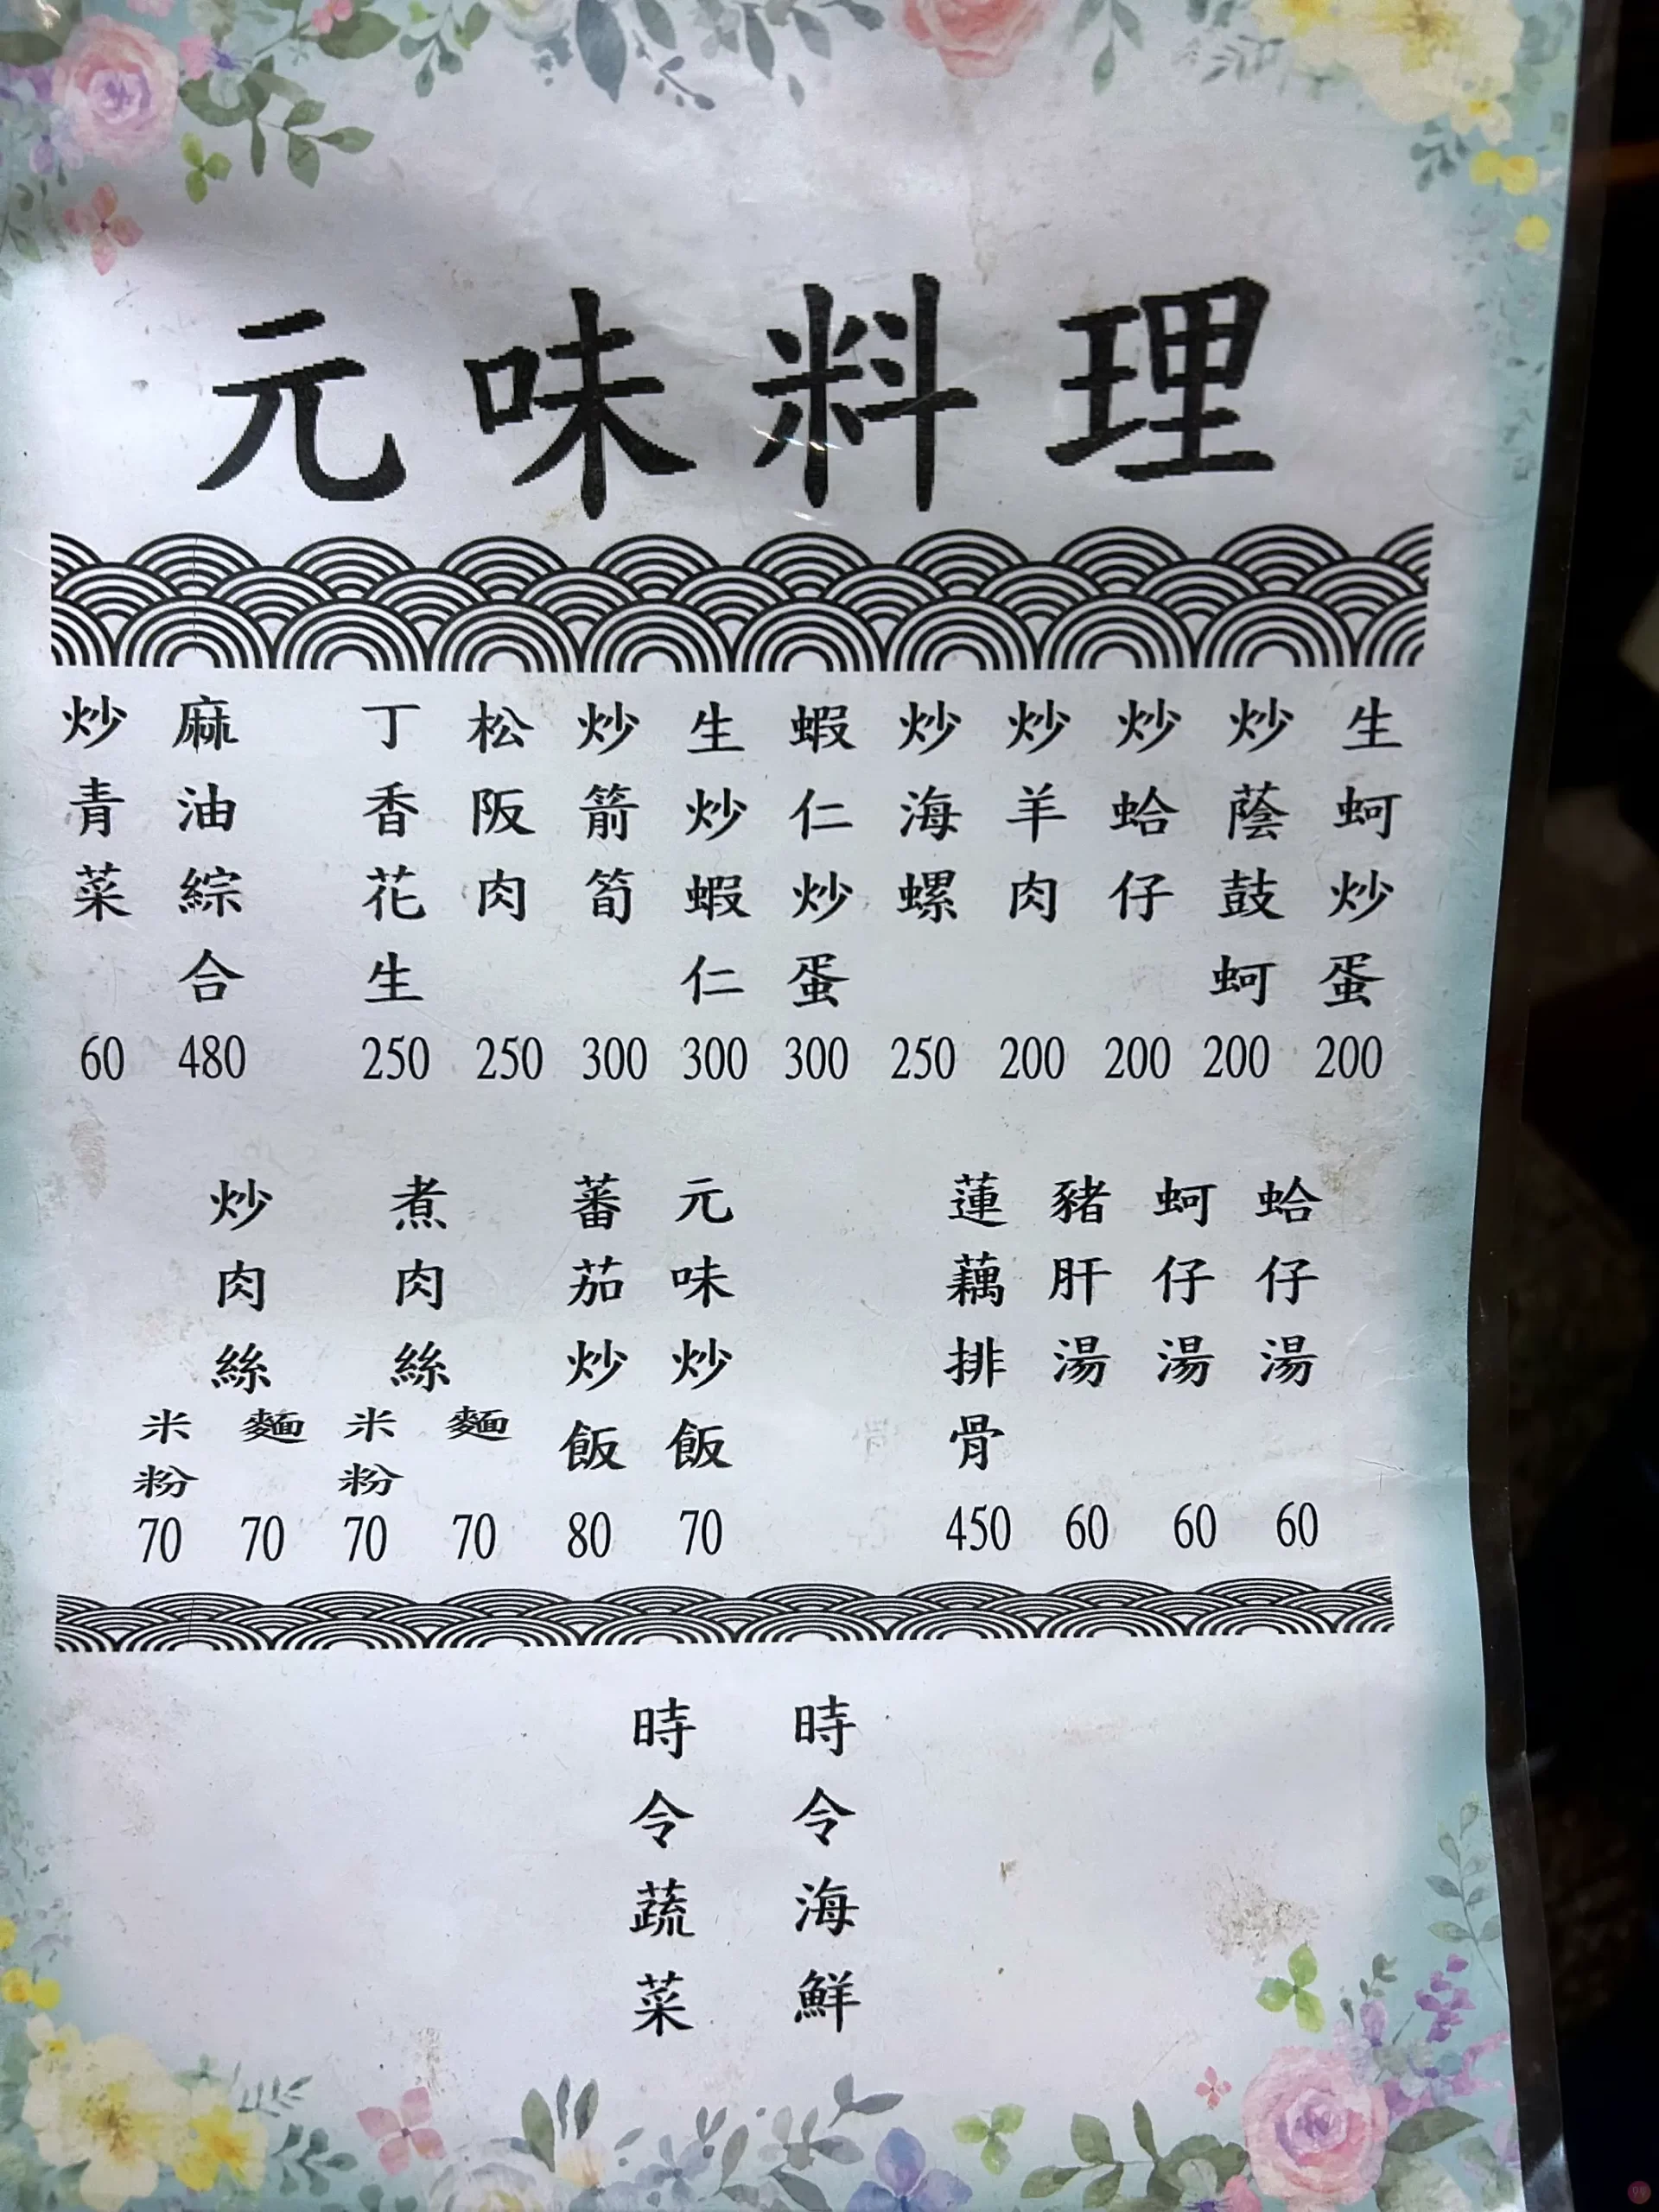 元味料理
生蚵炒蛋 200
炒蔭鼓蚵 200
炒蛤仔 200
炒羊肉 200
炒海螺 250
蝦仁炒蛋 300
生炒蝦仁 300
炒箭筍 300
松阪肉 250
丁香花生 250
麻油綜合 480
炒青菜 60
蛤仔湯 60
蚵仔湯 60
豬肝湯 60
蓮藕排骨 450
元味炒飯 70
蕃茄炒飯 80
煮肉絲
麵 70
米粉 70
炒肉絲
麵 70
米粉 70
時令海鮮
時令蔬菜